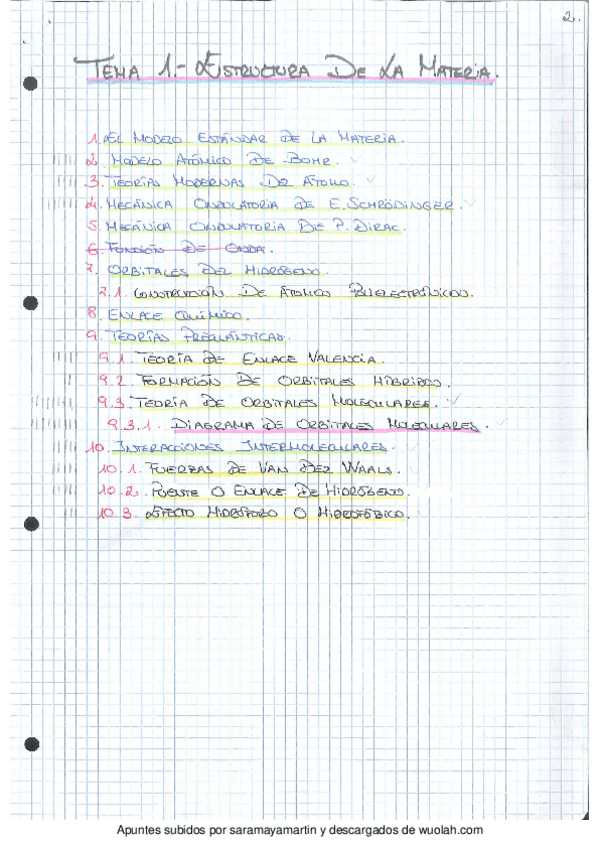 2.
TEMA 1.- ESTRUCTURA DE LA MATERIA.
1. EL MODELO ESTÁNDAR DE LA MATERIA.
2. MODELO ATÓMICO DE BOHR.
3. TEORÍAS MODERNAS DEL ÁTOMO.
4. MECÁNICA ONDULATORIA DE E. SCHRÖDINGER.
5. MECÁNICA ONDULATORIA DE P. DIRAC.
6. FUNCIÓN DE ONDA.
7. ORBITALES DEL HIDRÓGENO.
7.1. CONSTRUCCIÓN DE ÁTOMOS POLIELECTRÓNICOS.
8. ENLACE QUÍMICO.
9. TEORÍAS PRECUÁNTICAS.
9.1. TEORÍA DE ENLACE VALENCIA.
9.2. FORMACIÓN DE ORBITALES HÍBRIDOS.
9.3. TEORÍA DE ORBITALES MOLECULARES.
9.3.1. DIAGRAMA DE ORBITALES MOLECULARES.
10. INTERACCIONES INTERMOLECULARES.
10.1. FUERZAS DE VAN DER WAALS.
10.2. PUENTE O ENLACE DE HIDRÓGENO.
10.3. EFECTO HIDRÓFORO O HIDROFÓBICO.
Apuntes subidos por saramayamartin y descargados de wuolah.com